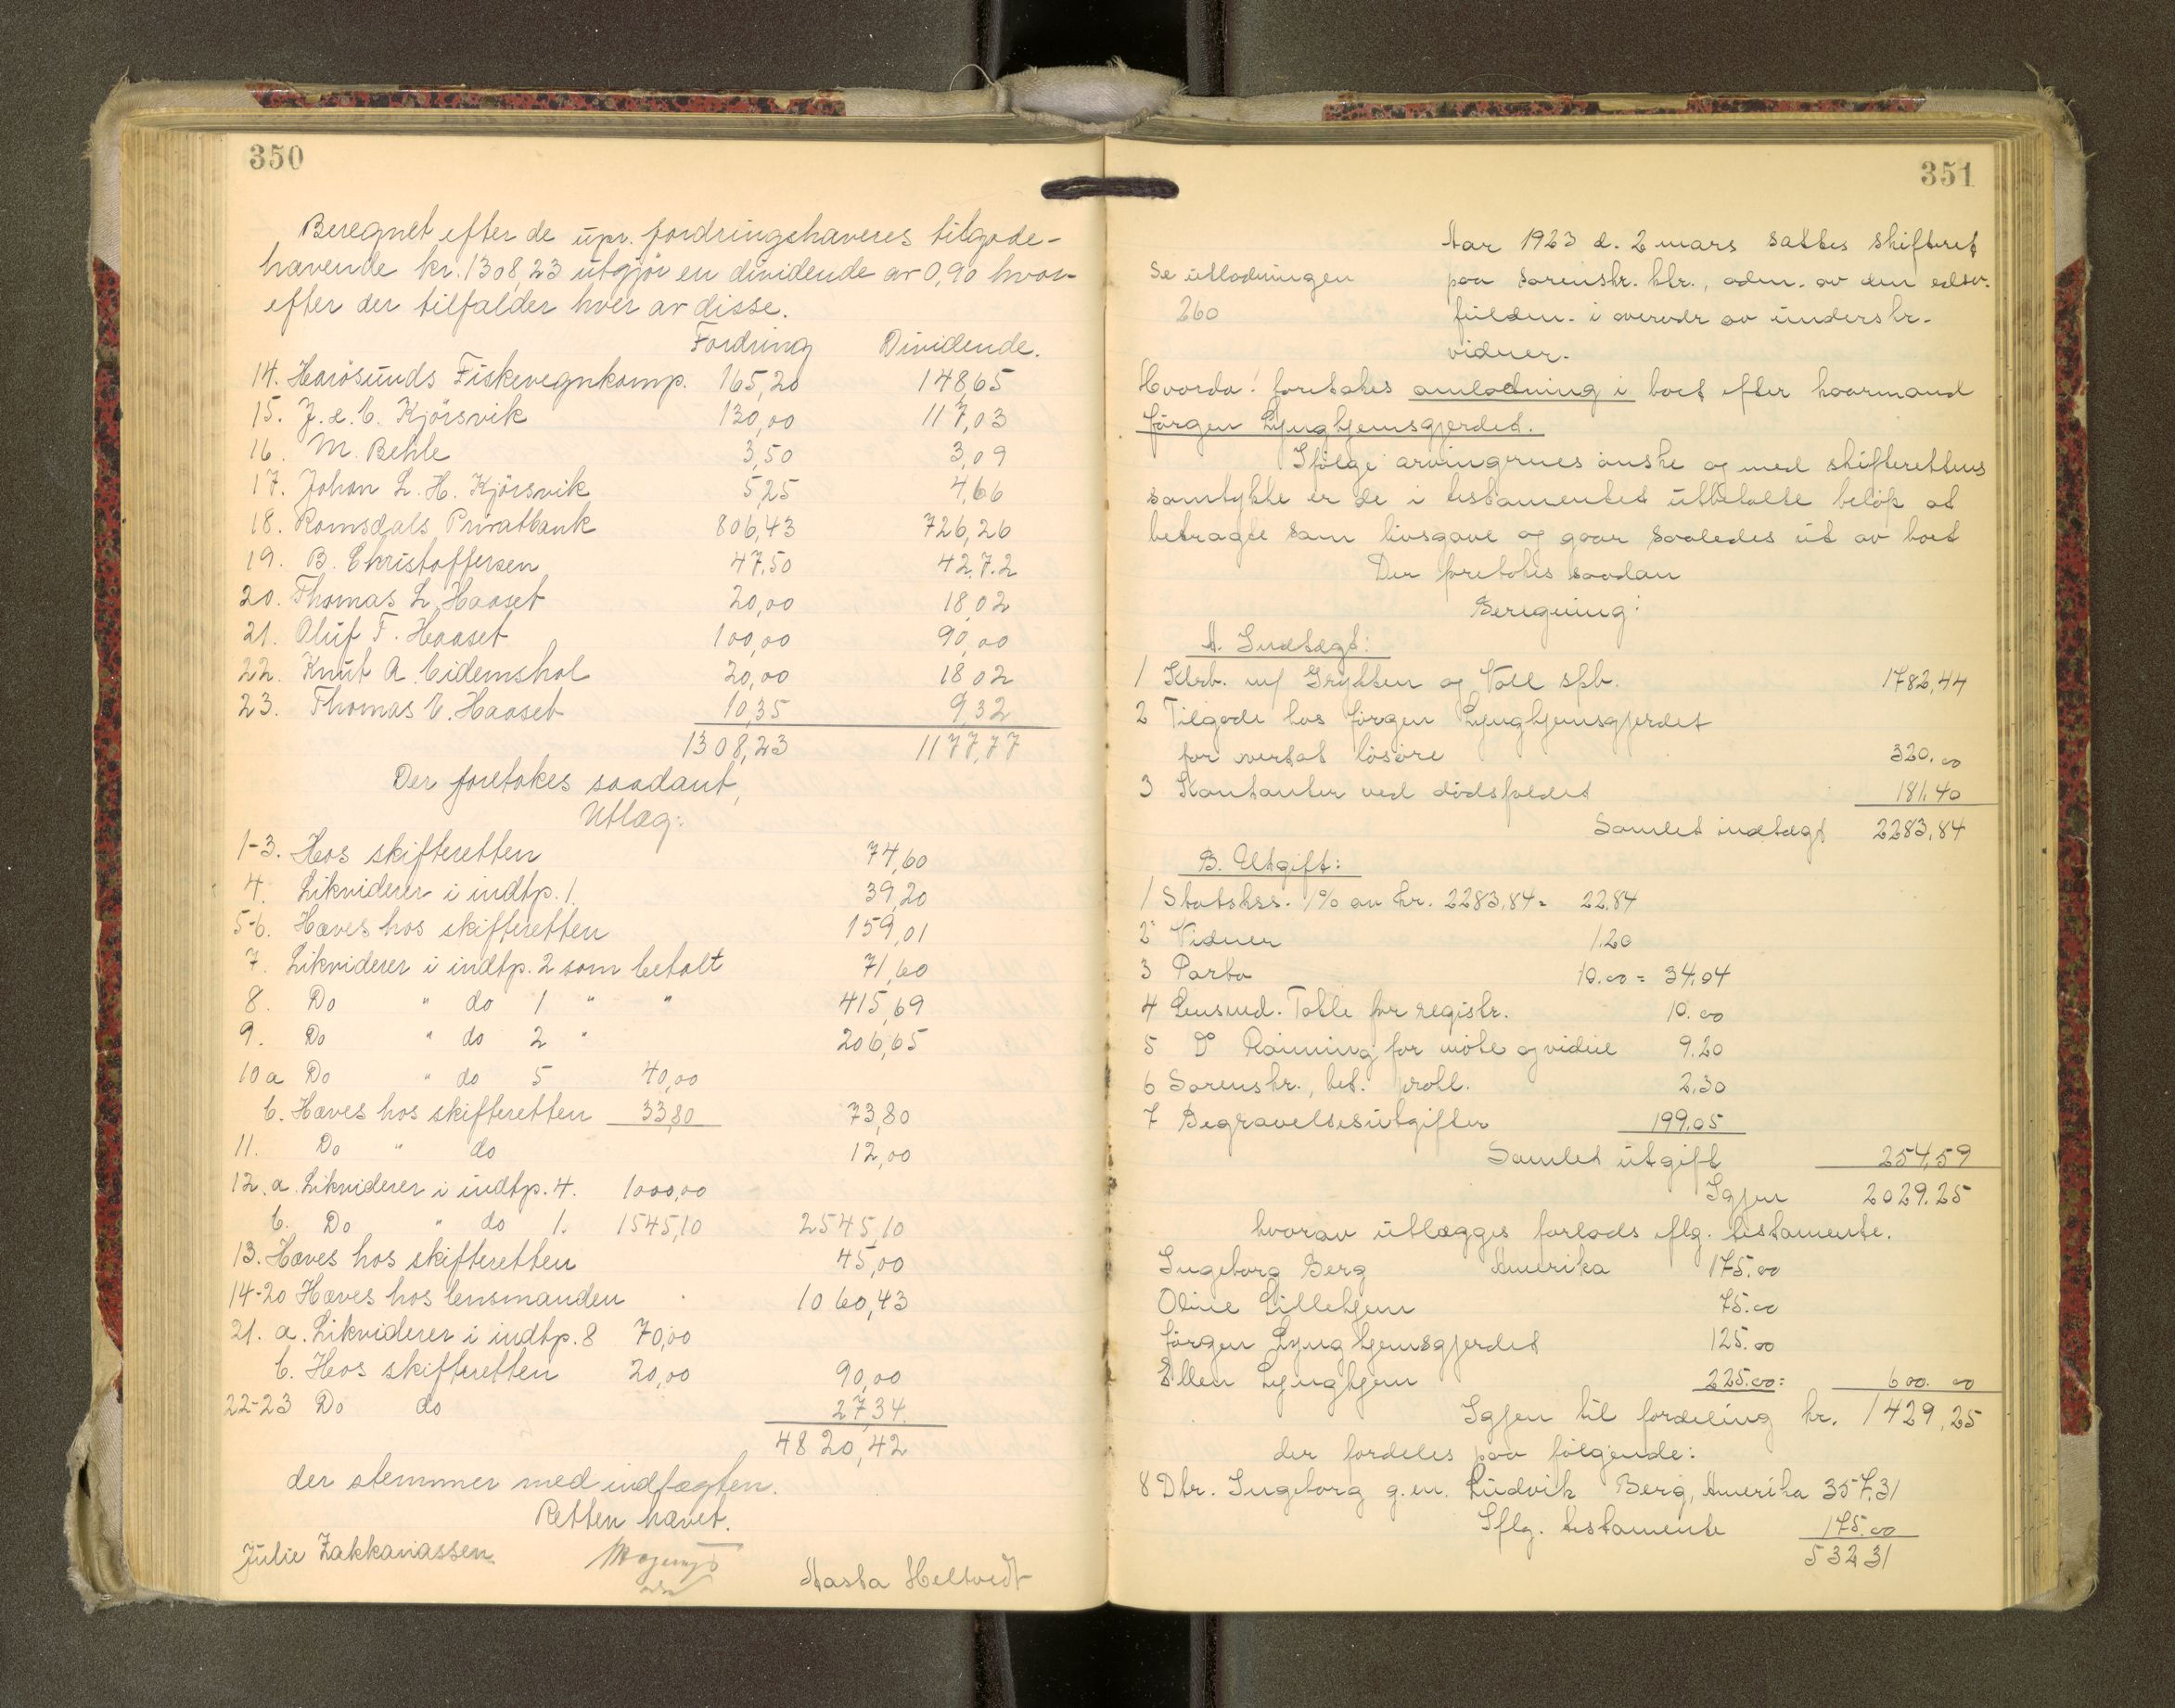 350
Beregnet efter de upr. fordringshaveres tilgode-
havende kr. 1308,23 utgjør en dividende av 0,90 hvor-
efter der tilfalder hver av disse.
Fordring Dividende.
14. Harøsunds Fiskevegnkomp. 165,20 148,65
15. J. & C. Kjørsvik 130,00 117,03
16. M. Behle 3,50 3,09
17. Johan L. H. Kjørsvik 5,25 4,66
18. Romsdals Privatbank 806,43 726,26
19. B. Christoffersen 47.50 42.72
20. Thomas L. Haaset 20,00 18,02
21. Oluf T. Haaset 100,00 90,00
22. Knut A. Eidemshol 20,00 18 02
23. Thomas E. Haaset 10,35 9 32
1308,23 1177,77
Der foretokes saadant,
Utlæg:
1-3. Hos skifteretten 74,60
4. Likviderer i indtp. 1. 39,20
5-6. Hæves hos skifteretten 159,01
7. Likviderer i indtp. 2 som betalt 71,60
8. Do " do 1 " " 415,69
9. Do " do 2 " 206,65
10 a Do " do 5 40,00
b. Hæves hos skifteretten 33,80 73,80
11. Do " do 12,00
12. a. Likviderer i indtp. 4. 1000,00
b. Do " do 1. 1545,10 2545,10
13. Hæves hos skifteretten 45,00
14-20 Hæves hos lensmanden 1060,43
21. a. Likviderer i indtp. 8 70,00
b. Hos skifteretten 20,00 90,00
22-23 Do do 27,34
4820,42
der stemmer med indtægten.
Retten hævet.
Julie Zakkariassen Aasta Heltvedt
351
Aar 1923 d. 2 mars sattes skifteret
paa sorenskr. ktr., adm. av den edsv.
fuldm. i overvær av underskr.
vidner.
Se utlodningen
260
Hvorda: foretokes omlodning i boet efter kaarmand
Jørgen Lynghjemsgjerdet.
Ifølge arvingernes ønske og med skifterettens
samtykke er de i testamentet utbetalte beløp at
betragte som livsgave og gaar saaledes ut av boet
Der foretokes saadan
Beregning:
A. Indtægt:
1 Ktrb. m/ Grytten og Voll spb. 1782,44
2 Tilgode hos Jørgen Lynghjemsgjerdet
for overtat løsøre 320.00
3 Kontanter ved dødsfaldet 181.40
Samlet indtægt 2283,84
B. Utgift:
1 Statskss. 1% av kr. 2283,84 = 22.84
2 Vidner 1.20
3 Porto 10.00 = 34.04
4 Lensmd. Tolle for registr. 10.00
5 Do Rønning for møte og vidne 9.20
6 Sorenskr., bet. proll. 2.30
7 Begravelsesutgifter 199.05
Samlet utgift 254,59
Igjen 2029.25
hvorav utlægges forlods iflg. testamente.
Ingeborg Berg Amerika 175.00
Oline Lillehjem 75.00
Jørgen Lynghjemsgjerdet 125.00
Ellen Lynghjem 225.00 = 600.00
Igjen til fordeling kr. 1429,25
der fordeles paa følgende:
8 Dtr. Ingeborg g.m. Ludvik Berg, Amerika 357,31
Iflg. testamente 175.00
532 31